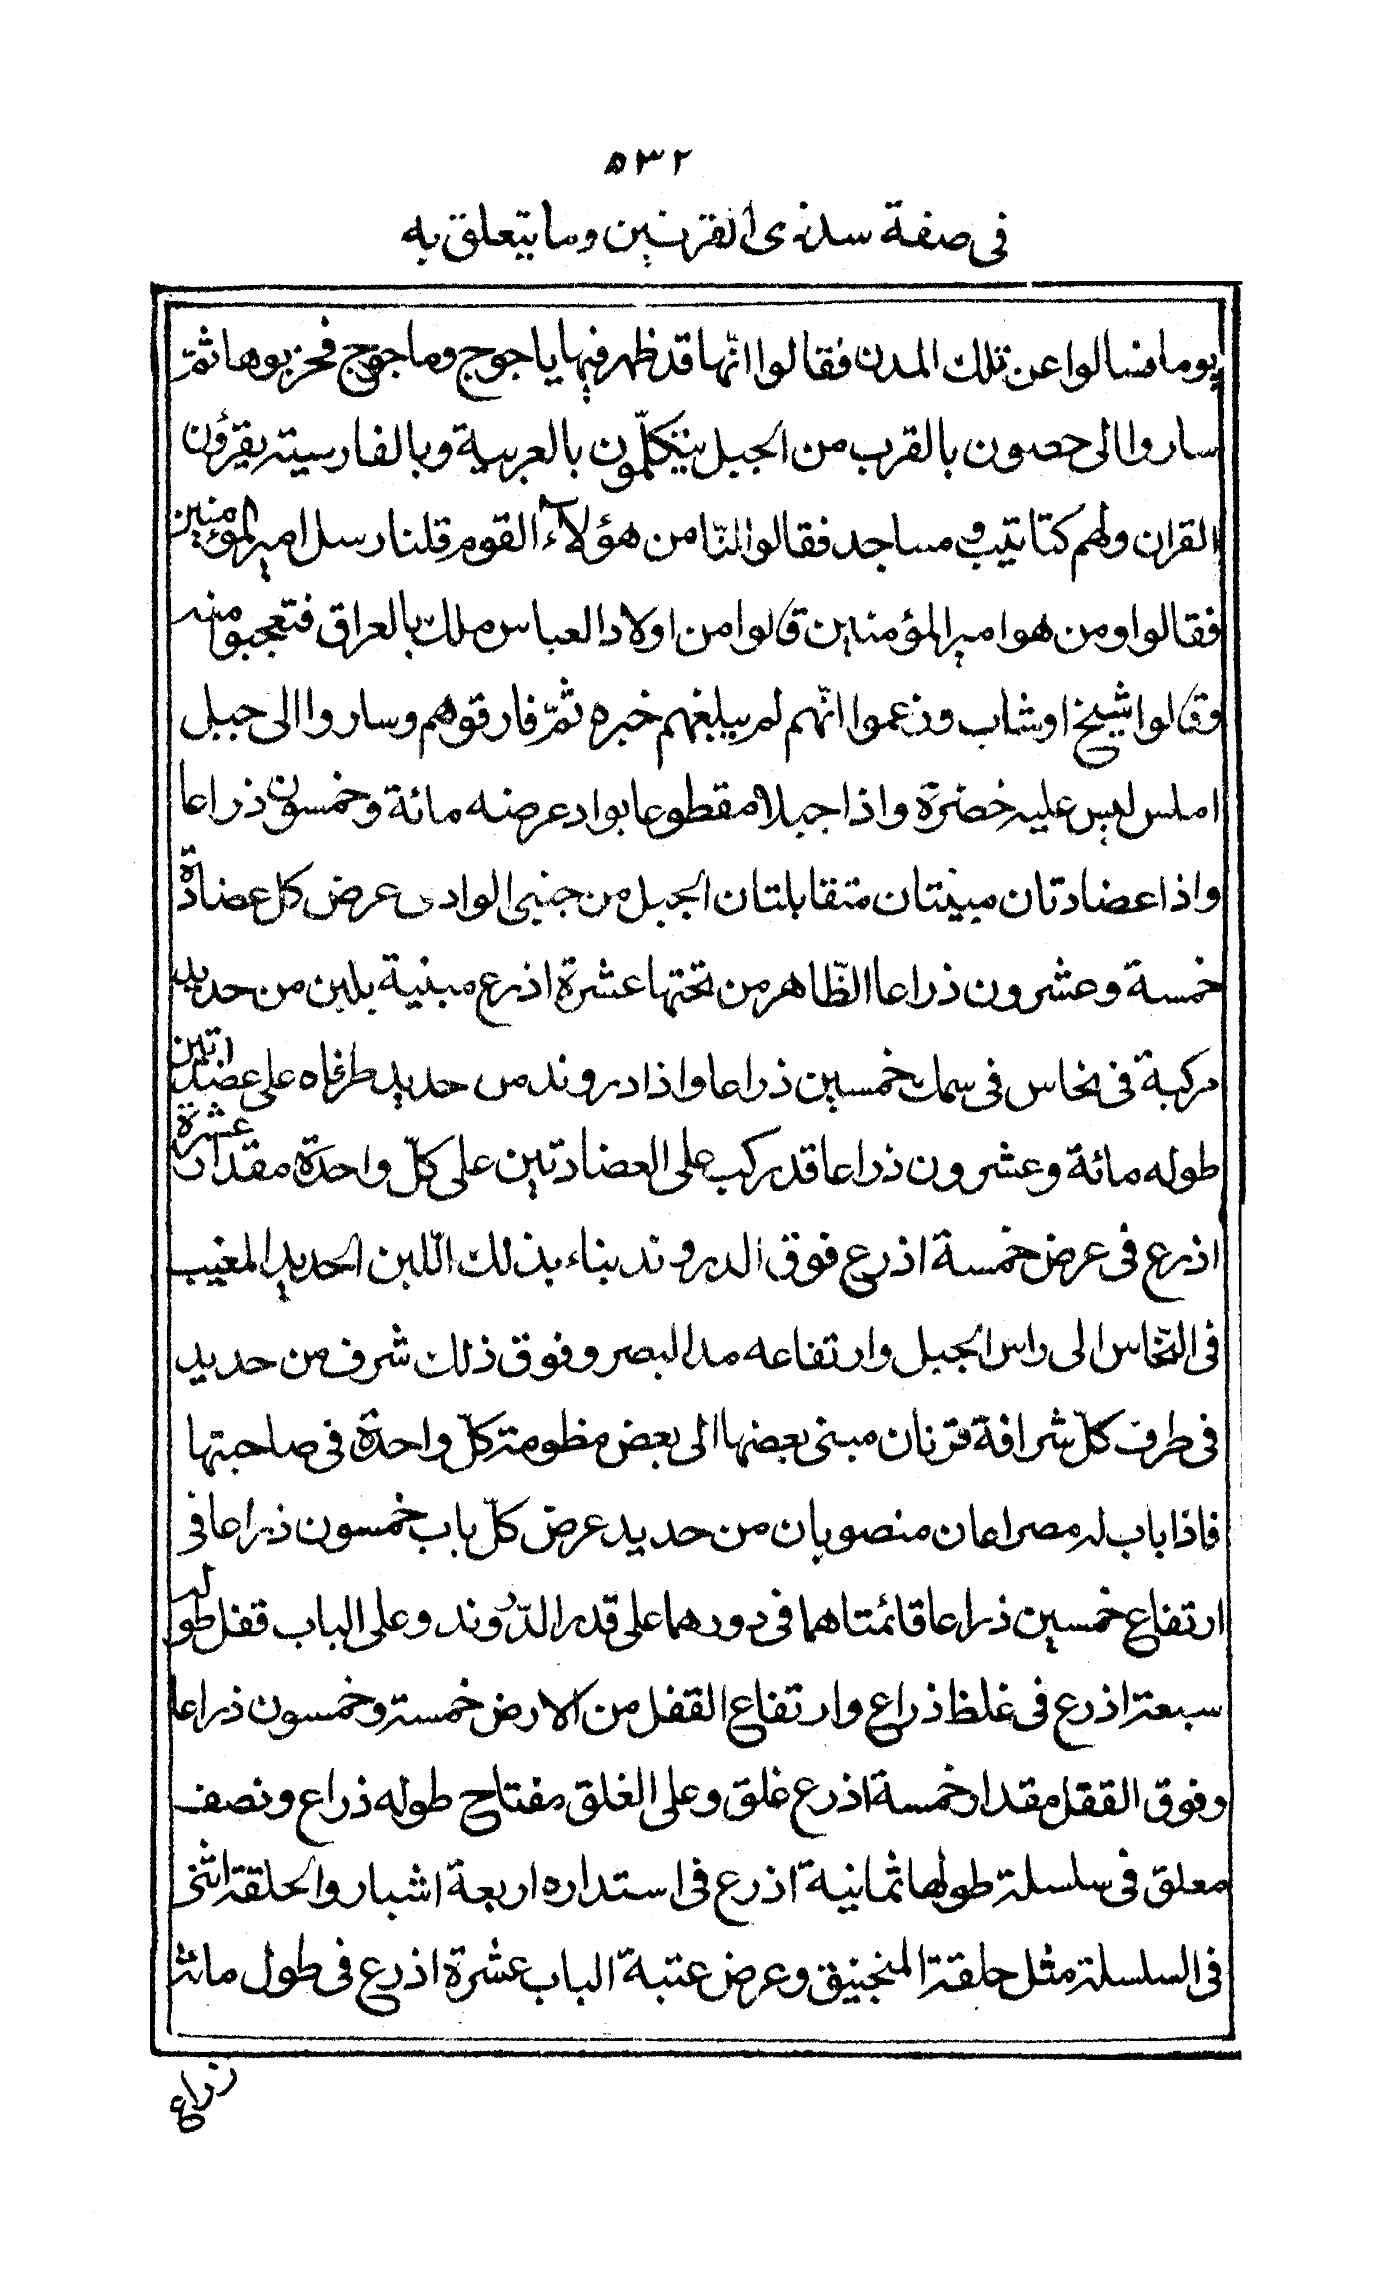 ٥٣٢
فى صفة سد ذى القرنين وما يتعلق به
يوما فسالوا عن تلك المدن فقالوا انّها قد ظهر فيها ياجوج وماجوج فخربوها ثمّ
ساروا الى حصون بالقرب من الجبل يتكلّمون بالعربية وبالفارسية يقرؤن
القران ولهم كتاتيب و مساجد فقالوا لنا من هؤلآء القوم قلنا رسل امير المؤمنين
فقالوا ومن هو امير المؤمنين قالوا من اولاد العباس ملك بالعراق فتعجبو منه
وقالوا شيخ او شاب وزعموا انّهم لم يبلغهم خبره ثمّ فارقوهم وساروا الى جبل
املس ليس عليه خضرة واذا جبلا مقطوعا بواد عرضه مائة وخمسون ذراعا
واذا عضادتان مبنيتان متقابلتان الجبل من جنبى الوادى عرض كل عضادة
خمسة وعشرون ذراعا الظّاهر من تحتها عشرة اذرع مبنية بلبن من حديد
مركبة فى نحاس فى سمك خمسين ذراعا واذا دروند من حديد طرفاه على عضادتين
طوله مائة وعشرون ذراعا قد ركب على العضادتين على كلّ واحدة مقدار عشرة
اذرع فى عرض خمسة اذرع فوق الدروند بناء بذلك اللّبن الحديد المغيب
فى النّحاس الى راس الجبل وارتفاعه مدالبصر وفوق ذلك شرف من حديد
فى طرف كلّ شرافة قرنان مبنى بعضها الى بعض مظومة كلّ واحدة فى صاحبتها
فاذا باب له مصراعان منصوبان من حديد عرض كلّ باب خمسون ذراعا فى
ارتفاع خمسين ذراعا قائمتاهما فى دورهما على قدر الدّروند وعلى الباب قفل طوله
سبعة اذرع فى غلظ ذراع وارتفاع القفل من الارض خمسة وخمسون ذراعا
وفوق القفل مقدار خمسة اذرع غلق وعلى الغلق مفتاح طوله ذراع ونصف
معلق فى سلسلة طولها ثمانية اذرع فى استداره اربعة اشبار والحلقة اتنى
فى السلسلة مثل حلقة المنجنيق وعرض عتبة الباب عشرة اذرع فى طول مائة
ذراع